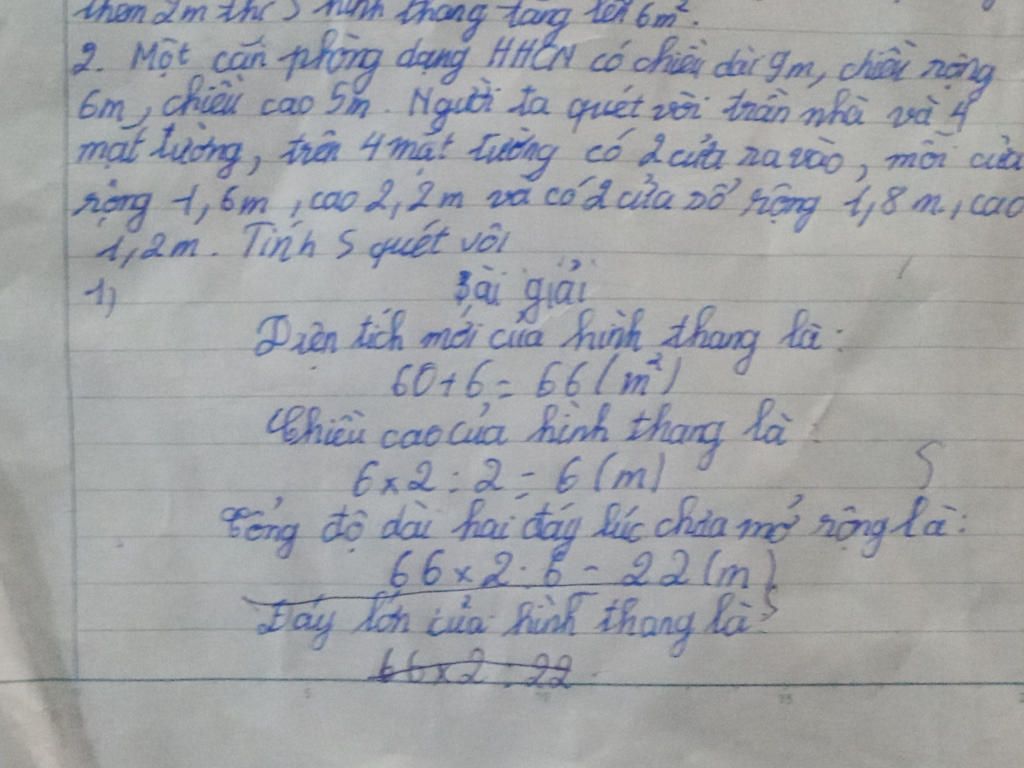 thêm 2m thì S hình thang tăng lên 6m².
2. Một căn phòng dạng HHCN có chiều dài 9m, chiều rộng
6m, chiều cao 5m. Người ta quét vôi trần nhà và 4
mặt tường, trên 4 mặt tường có 2 cửa ra vào, mỗi cửa
rộng 1,6m, cao 2,2m và có 2 cửa sổ rộng 1,8m, cao
1,2m. Tính S quét vôi
1) Bài giải
Diện tích mới của hình thang là:
60+6= 66(m²)
Chiều cao của hình thang là:
6×2:2=6(m)
Tổng độ dài hai đáy lúc chưa mở rộng là:
66×2:6=22(m)
Đáy lớn của hình thang là:
66×2:22